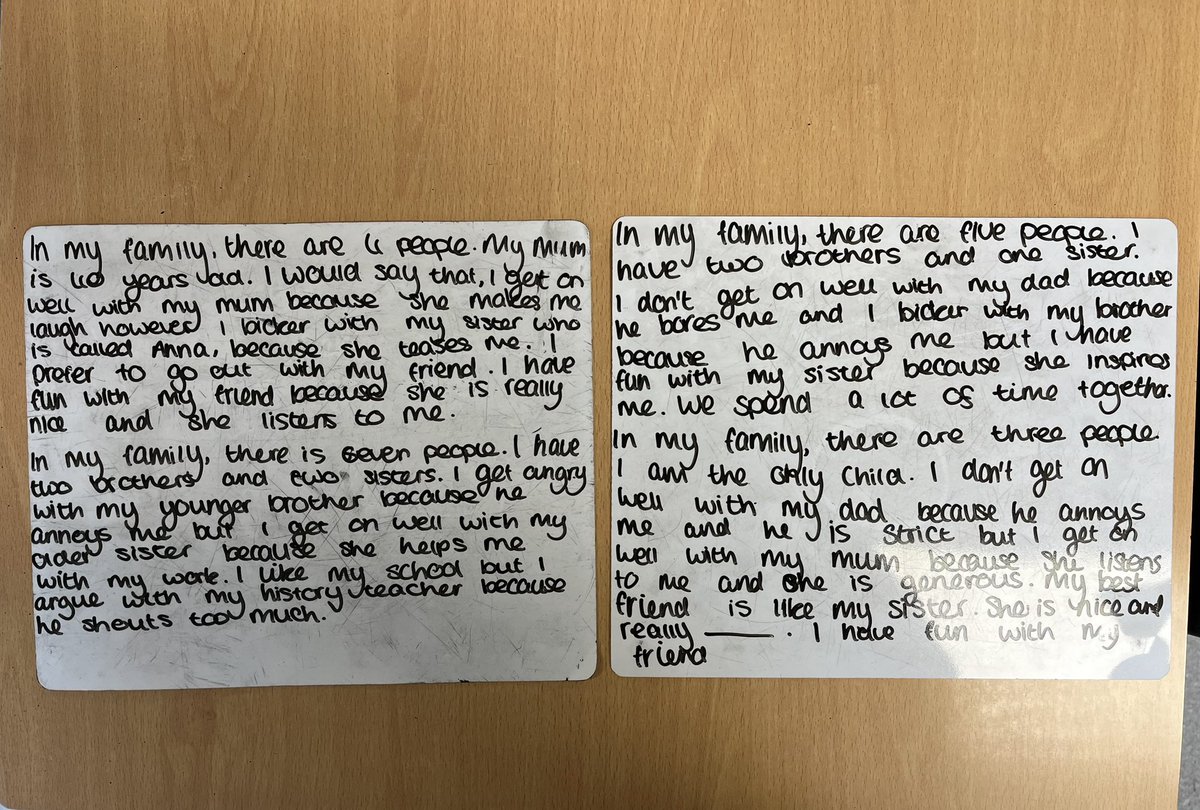 In my family, there are 4 people. My mum
is 40 years old. I would say that, I get on
well with my mum because she makes me
laugh however I bicker with my sister who
is called Anna, because she teases me. I
prefer to go out with my friend. I have
fun with my friend because she is really
nice and she listens to me.
In my family, there is seven people. I have
two brothers and two sisters. I get angry
with my younger brother because he
annoys me but I get on well with my
older sister because she helps me
with my work. I like my school but I
argue with my history teacher because
he shouts too much.
In my family, there are five people. I
have two brothers and one sister.
I don't get on well with my dad because
he bores me and I bicker with my brother
because he annoys me but I have
fun with my sister because she inspires
me. We spend a lot of time together.
In my family, there are three people.
I am the only child. I don't get on
well with my dad because he annoys
me and he is strict but I get on
well with my mum because she listens
to me and she is generous. My best
friend is like my sister. She is nice and
really ______. I have fun with my
friend